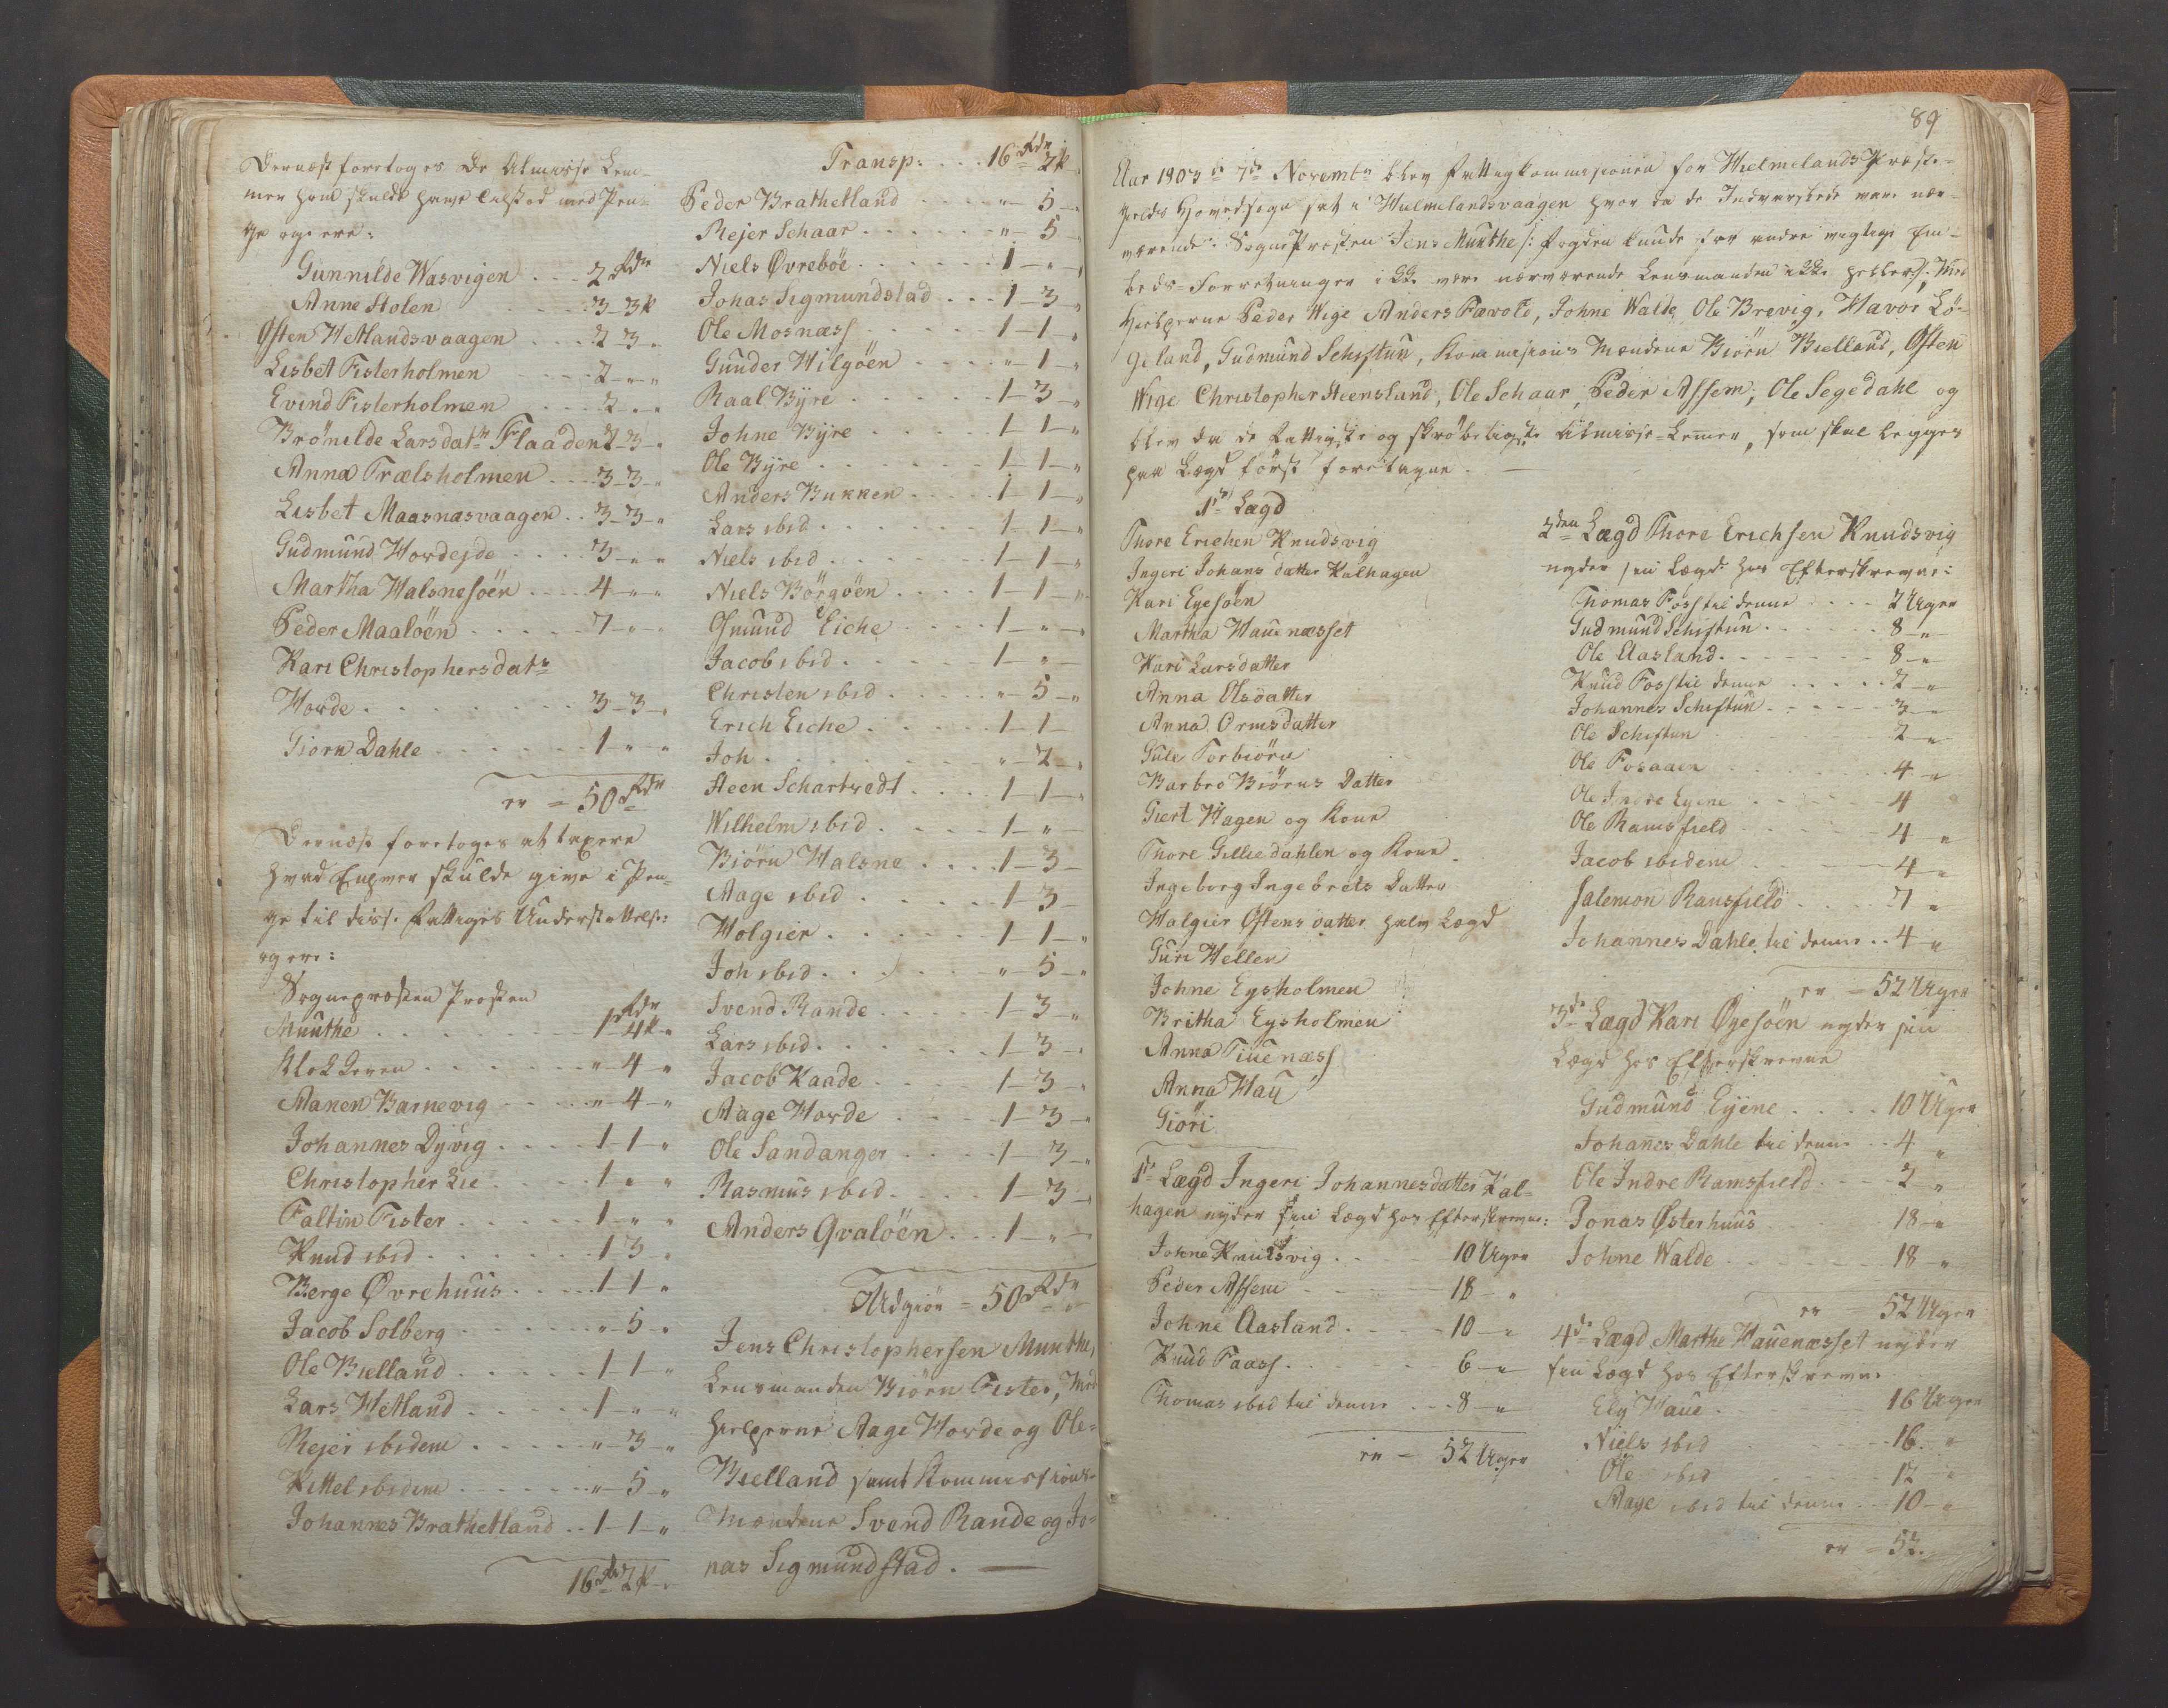 Dernæst foretoges de Almisse Lem-
mer som skulde have tilstod med Pen-
ge og ere:
Gunnilde Wasvigen ... 2 Rdr
Anne Stolen 3-3 #
Østen Wetlandsvaagen ... 2 3 "
Lisbet Fisterholmen 2 " "
Evind Fisterholmen ... 2 " "
Brönilde Larsdatr Flaaden 2-3-"
Anna Trælsholmen ... 3 3 "
Lisbet Maasnæsvaagen .. 3-3-"
Gudmund Hordejde ... 3 " "
Martha Halsnesöen ... 4 " "
Peder Maalöen ... 7 " "
Kari Christophersdatr
Horde ... 3-3 "
Giörn Dahle ... 1 " "
er = 50 Rdr
Dernæst foretoges at taxere
hvad Enhver skulde give i Pen-
ge til diss. Fattiges Understøttelse:
og ere:
Sogneprosten Prosten
Munthe ... 1 Rdr 4 # "
Klokkeren ... " 4 "
Manen Barnevig ... " 4 "
Johannes Dyvig ... 1 1 "
Christopher Lie ... 1 " "
Faltin Fister ... 1 " "
Knud ibid ... 1 3 "
Berge Øvrehuus ... 1 1 "
Jacob Solberg ... " 5 "
Ole Bielland ... 1 1 "
Lars Wetland ... 1 " "
Rejer ibidem ... " 3 "
Kittel ibidem ... " 5 "
Johannes Brathetland .. 1-1 "
16 Rdr 2 # "
Transp: ... 16 Rdr 2 #
Peder Brathetland ... " 5 "
Rejer Schaar ... " 5
Niels Øvreböe ... 1 " "
Johas Sigmundstad ... 1-3 "
Ole Mosnæss ... 1-1 "
Gunder Hilgöen ... " 1 "
Raal Byre ... 1-3 "
Johne Byre ... 1-1 "
Ole Byre ... 1-1 "
Anders Bukken ... 1-1 "
Lars ibid ... 1-1 "
Niels ibid ... 1-1 "
Niels Börgöen ... 1-1 "
Osmund Eiche ... 1 " "
Jacob ibid ... 1 "
Christen ibid ... " 5 "
Erich Eiche ... 1-1
Joh ... " 2 "
Steen Schartvedt ... 1-1 "
Wilhelm ibid ... 1-"
Biörn Halsne ... 1-3
Aage ibid ... 1-3
Holgier ... 1-1 "
Joh ibid ... " 5 "
Svend Rande ... 1-3 "
Lars ibid ... 1-3 "
Jacob Kaade ... 1-3 "
Aage Horde ... 1-3 "
Ole Sandanger ... 1-3 "
Rasmus ibid ... 1-3 "
Anders Qvalöen ... 1 " "
Udgiör = 50 Rdr
Jens Christophersen Munthe,
Lensmanden Biörn Fister, Med
hielperne Aage Horde og Ole
Bielland samt Kommissions-
Mændene Svend Rande og Jo-
nas Sigmundstad. —
89
Aar 1803 d. 7de Novembr blev Fattigkommisionen for Hielmelands Præste-
gields Hovedsogn sat i Hielmelandsvaagen hvor da de Indvarslede vare nær-
værende. SogneProsten Jens Munthe /: Fogden kunde for andre vigtige Em-
beds-Forretninger ikke være nærværende Lensmanden ikke heller :/. Med
hielperne Peder Wige Anders Færvold, Johne Walde, Ole Brevig, Havor Lö-
geland, Gudmund Schiftun, Kommisions Mændene Biörn Bielland, Østen
Wige Christopher Steensland, Ole Schaar, Peder Assem, Ole Segedahl og
blev da de Fattigste og skröbeligste Almisse-Lemer, som skal legges
paa Lægd först foretagne. —
1ste Lægd
Thore Erichen Knudsvig
Ingeri Johans datter Kalhagen
Kari Eyesöen
Martha Hauenæsset
Kari Larsdatter
Anna Olsdatter
Anna Ormsdatter
Gule Torbiörn
Barbro Biörns Datter
Giert Hagen og Kone
Thore Gilliedahlen og Kone
Ingeborg Ingebrets Datter
Walgier Østens datter halv Lægd
Guri Hellen
Johne Eysholmen
Britha Eysholmen
Anna Tiuenæss
Anna Hau
Giöri
1ste Lægd Ingeri Johannesdatter Kal-
hagen nyder sin Lægd hos Efterskrevne:
Johne Knudsvig ... 10 Uger
Peder Assem ... 18 "
Johne Aasland ... 10 "
Knud Faass ... 6 "
Thomas ibid til denne ... 8 "
er = 52 Uger
2den Lægd Thore Erichsen Knudsvig
nyder sin Lægd hos Efterskrevne:
Thomas Foss til denne ... 2 Uger
Gudmund Schiftun ... 8 "
Ole Aasland ... 8 "
Knud Foss til denne ... 2 "
Johannes Schiftun ... 3 "
Ole Schiftun 2 "
Ole Fosaaen ... 4 "
Ole Indre Eyene ... 4
Ole Ramsfield ... 4 "
Jacob ibidem ... 4 "
Salemon Ramsfield ... 7 "
Johannes Dahle til denne .. 4 "
er = 52 Uger
3de Lægd Kari Øyesöen nyder sin
Lægd hos Efterskrevne
Gudmund Eyene ... 10 Uger
Johanes Dahle til denne .. 4 "
Ole Indre Ramsfield ... 2 "
Jonas Østerhuus 18 "
Johne Walde ... 18 "
er = 52 Uger
4de Lægd Martha Hauenæsset nyder
sin Lægd hos Efterskrevne
Elij Haue ... 16 Uger
Niels ibid ... 16 "
Ole ibid ... 12 "
Aage ibid til denne .. 10 "
er = 52.